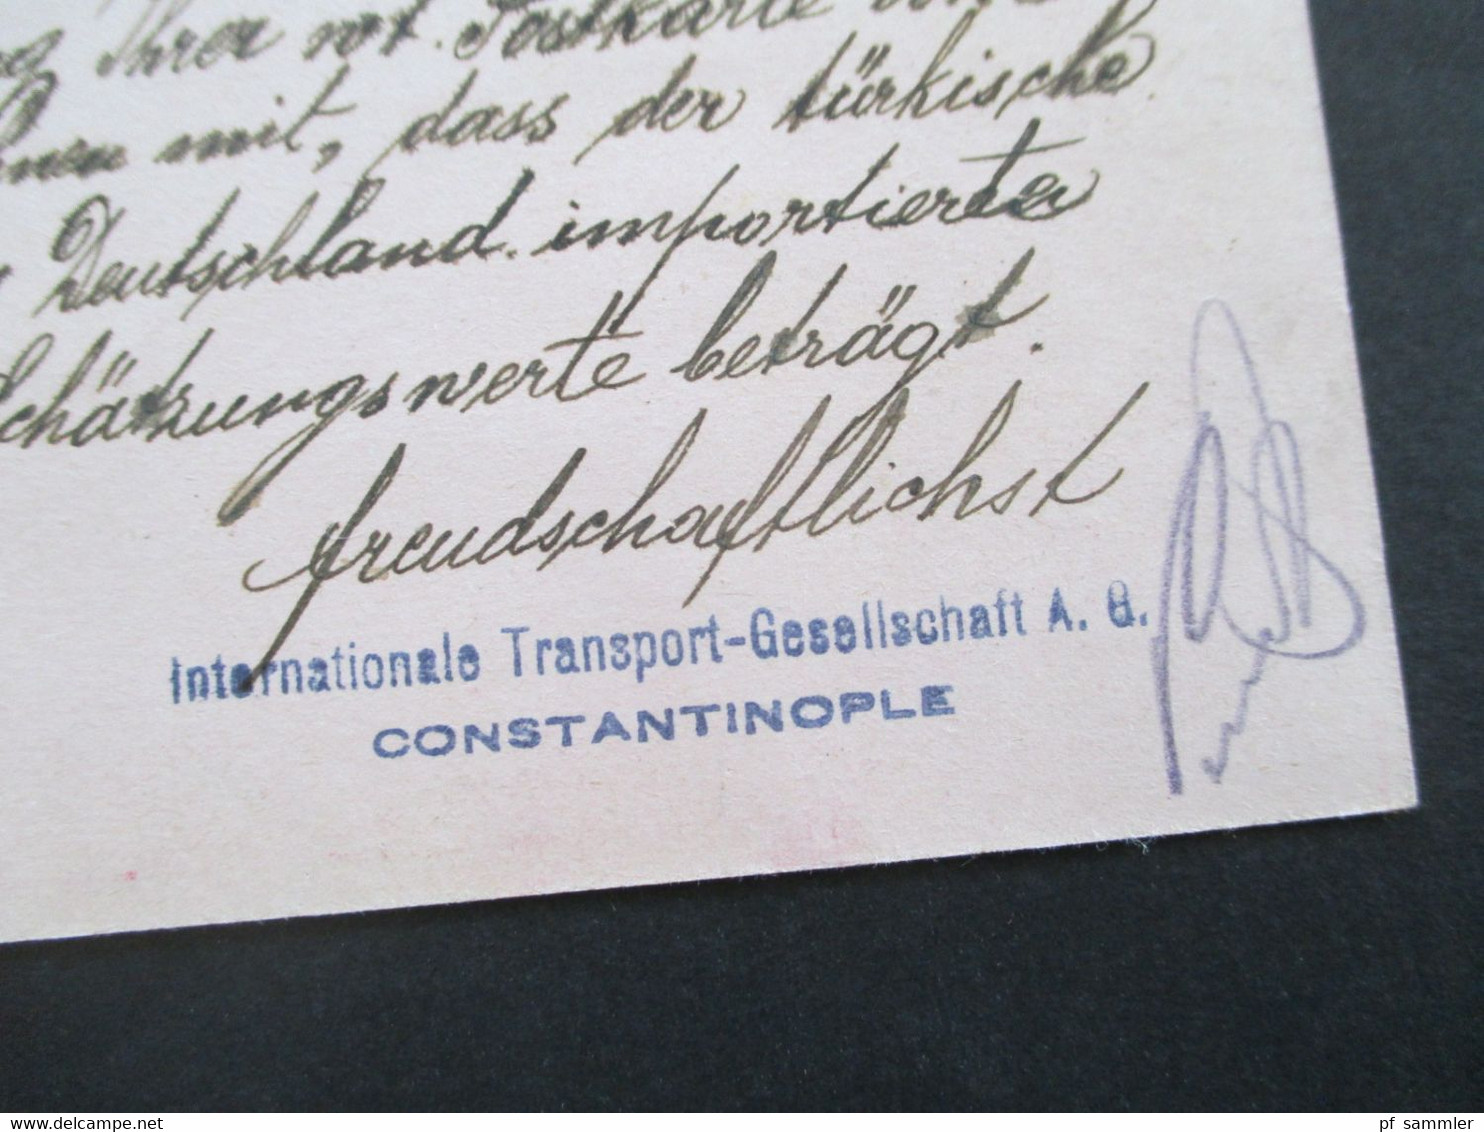 Ihrer wt. Postkarte
mit, dass der türkische
Deutschland importierter
Schätzungswerte beträgt.
freundschaftlichst
Internationale Transport-Gesellschaft A. G.
CONSTANTINOPLE
delcampe.net
pf_sammler